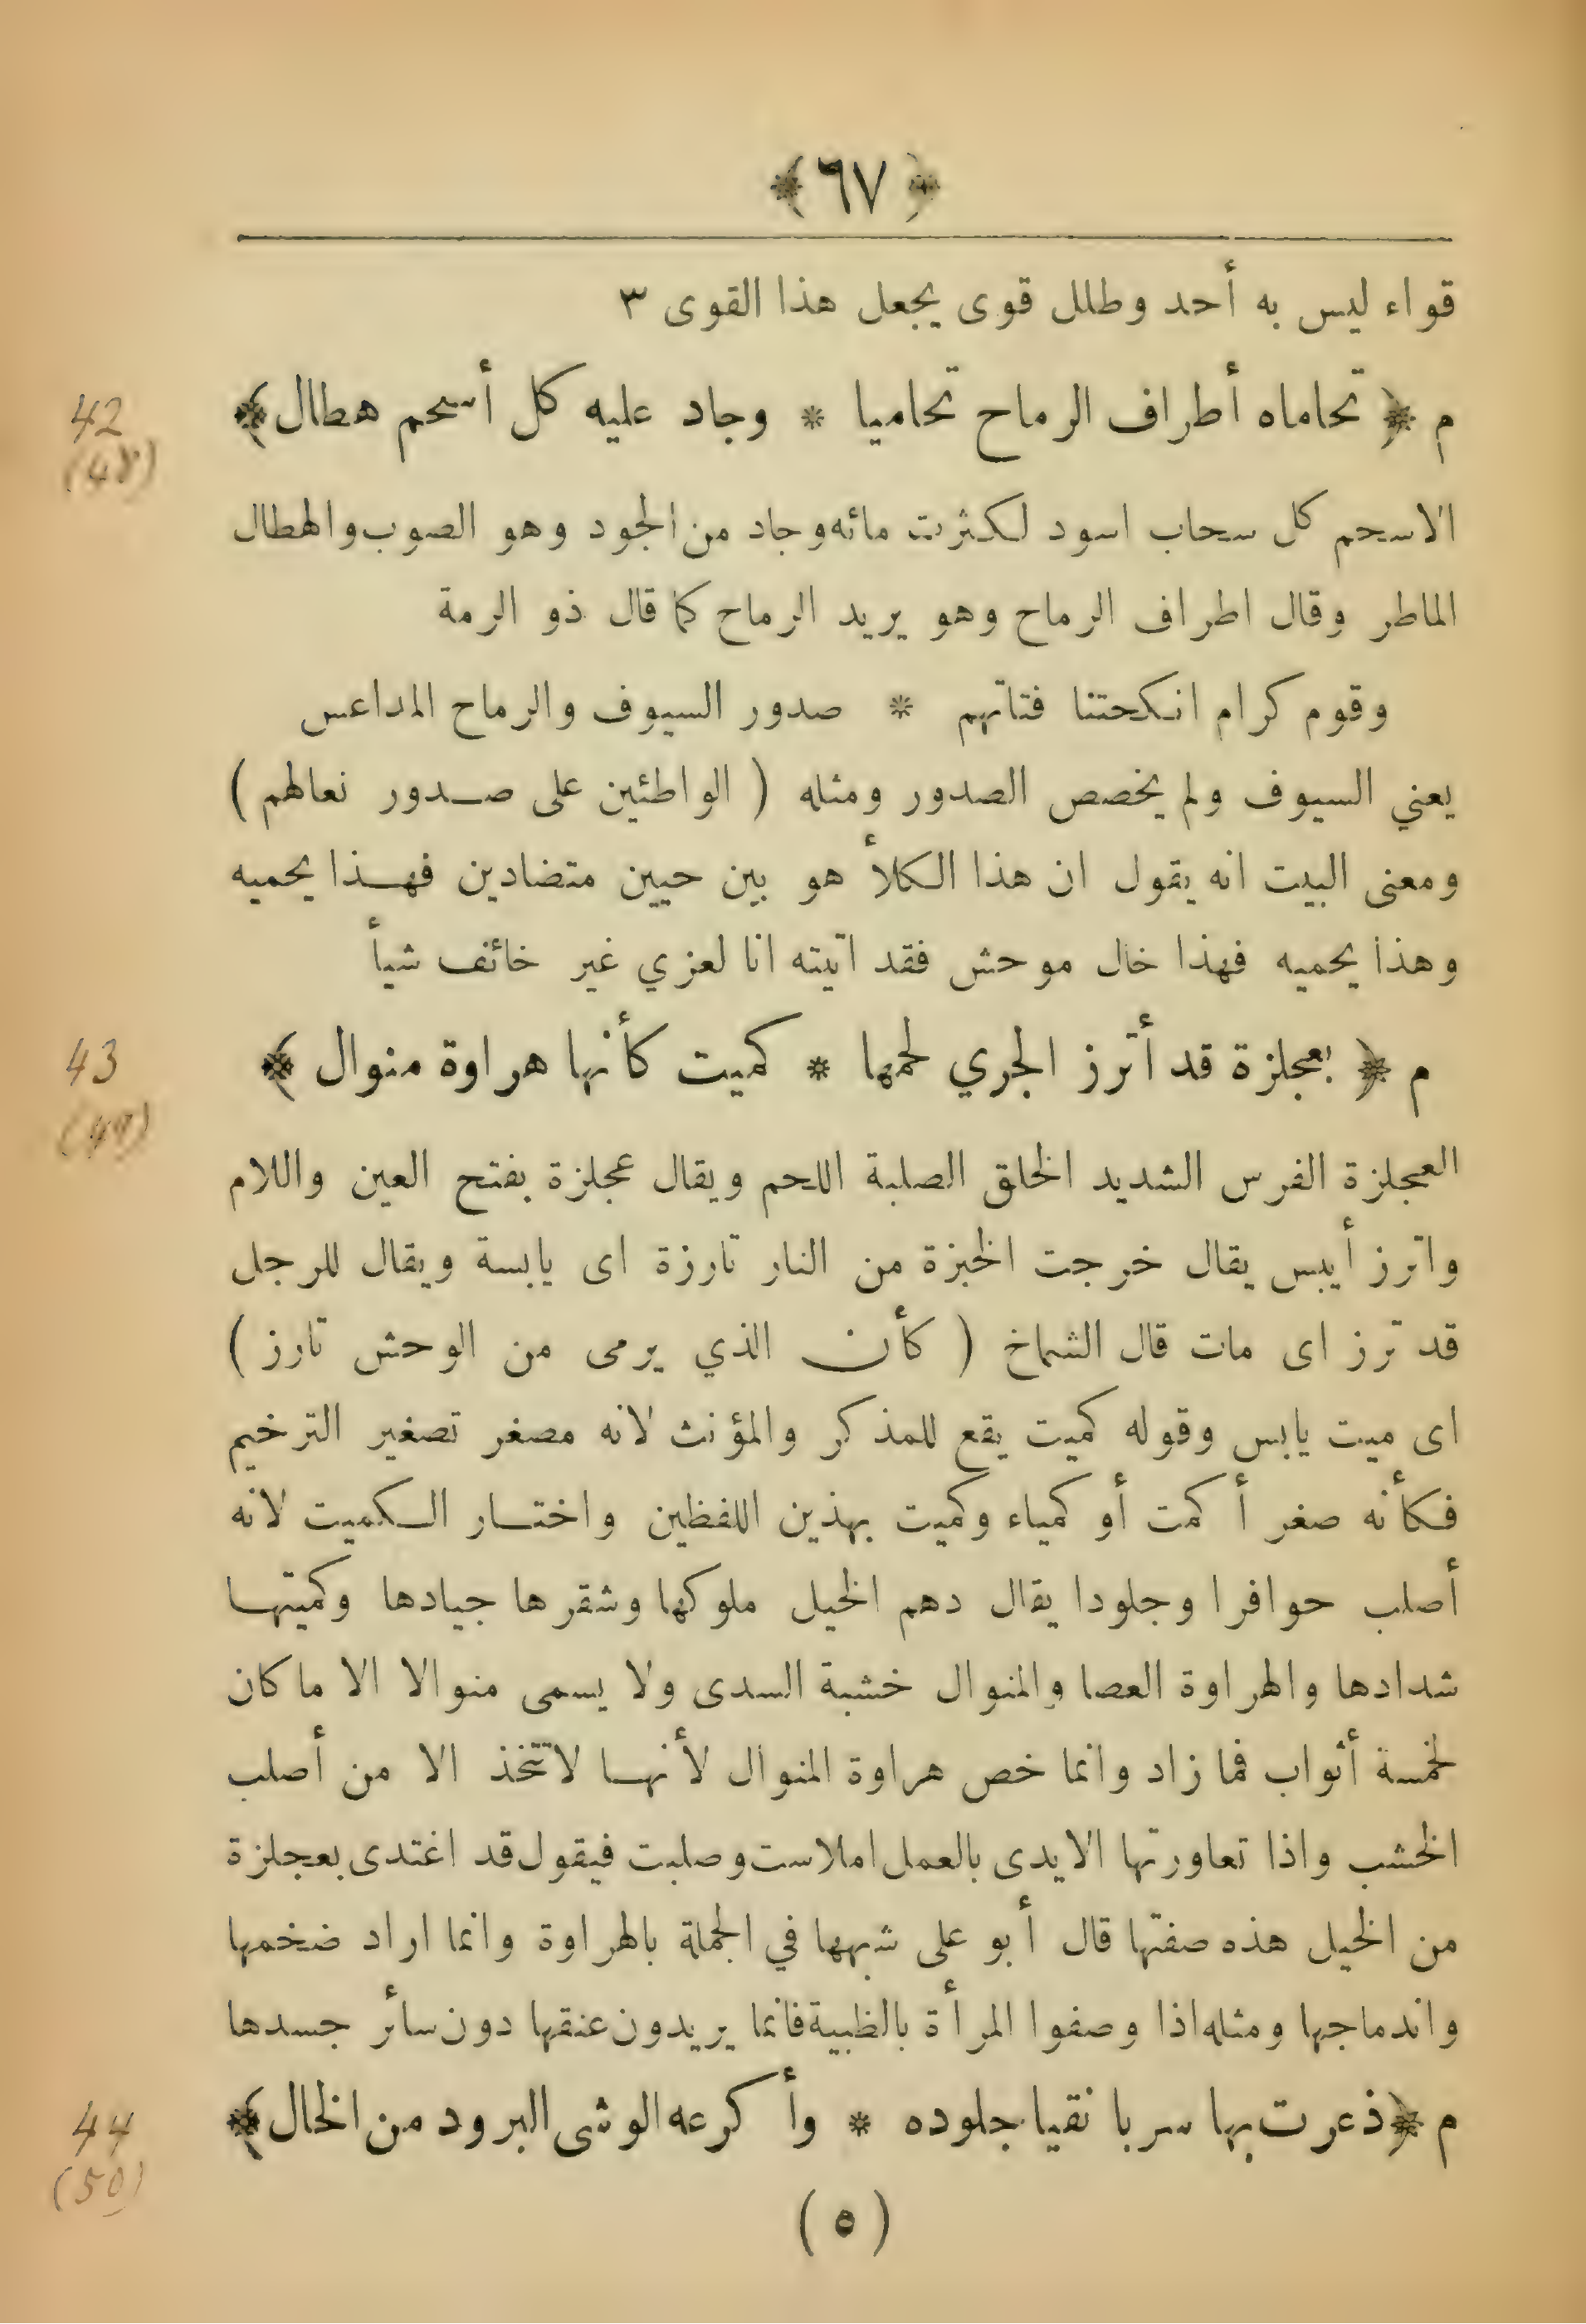 ﴿٦٧﴾
قواء ليس به أحد وطلل قوى يجعل هذا القوى ٣
م ﴿ تحاماه أطراف الرماح تحاميا * وجاد عليه كل أسحم هطال ﴾
42
(48)
الاسحم كل سحاب اسود لكثرت مائه وجاد من الجود وهو الصوب والهطال
الماطر وقال اطراف الرماح وهو يريد الرماح كما قال ذو الرمة
وقوم كرام انكحتنا فتاتهم * صدور السيوف والرماح المداعس
يعني السيوف ولم يخصص الصدور ومثله ( الواطئين على صدور نعالهم )
ومعنى البيت انه يقول ان هذا الكلأ هو بين حيين متضادين فهذا يحميه
وهذا يحميه فهذا خال موحش فقد اتيته انا لعزي غير خائف شيأ
م ﴿ بعجلزة قد أترز الجري لحمها * كميت كأنها هراوة منوال ﴾
43
(49)
العجلزة الفرس الشديد الخلق الصلبة اللحم ويقال عجلزة بفتح العين واللام
واترز أيبس يقال خرجت الخبزة من النار تارزة اى يابسة ويقال للرجل
قد ترز اى مات قال الشماخ ( كأن الذي يرمى من الوحش تارز )
اى ميت يابس وقوله كميت يقع للمذكر والمؤنث لانه مصغر تصغير الترخيم
فكأنه صغر أكمت أو كمياء وكميت بهذين اللفظين واختار الكميت لانه
أصلب حوافرا وجلودا يقال دهم الخيل ملوكها وشقرها جيادها وكميتها
شدادها والهراوة العصا والمنوال خشبة السدى ولا يسمى منوالا الا ما كان
لخمسة أثواب فما زاد وانما خص هراوة المنوال لأنها لاتتخذ الا من أصلب
الخشب واذا تعاورتها الايدى بالعمل املاست وصلبت فيقول قد اغتدى بعجلزة
من الخيل هذه صفتها قال أبو على شبهها في الجملة بالهراوة وانما اراد ضخمها
واندماجها ومثله اذا وصفوا المرأة بالظبية فانما يريدون عنقها دون سائر جسدها
م ﴿ ذعرت بها سربا نقيا جلوده * وأكرعه الوشى البرود من الخال ﴾
44
(50)
( ٥ )